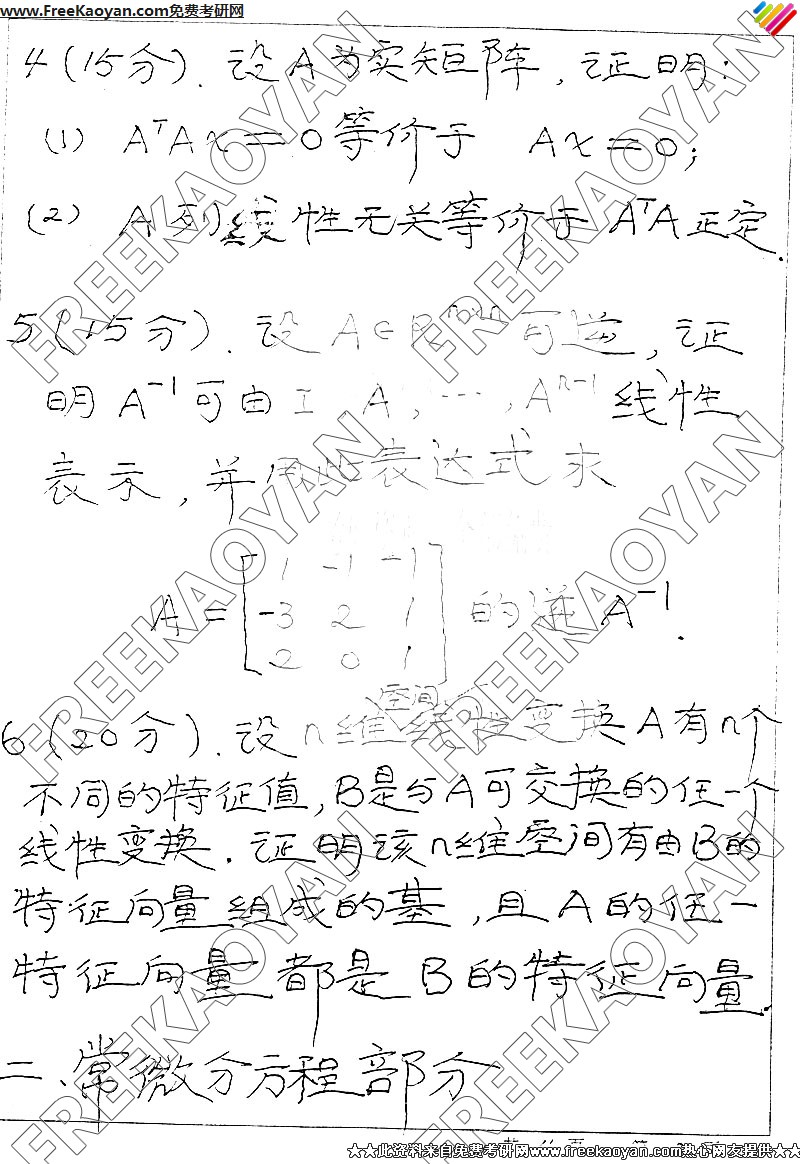 www.FreeKaoyan.com免费考研网
4(15分).设A为实矩阵,证明:
(1) AᵀAx=0等价于 Ax=0;
(2) A列线性无关等价于AᵀA正定.
5(15分).设A∈Rⁿˣⁿ可逆,证
明A⁻¹可由I A,…,Aⁿ⁻¹线性
表示,并用此表达式求
A=[1 -1 -1
-3 2 1
2 0 1]的逆A⁻¹.
空间
6(20分).设n维线性变换A有n个
不同的特征值,B是与A可交换的任一个
线性变换.证明该n维空间有由B的
特征向量组成的基,且A的任一
特征向量都是B的特征向量.
二、常微分方程部分
★★此资料来自免费考研网www.freekaoyan.com热心网友提供★★
FREEKAOYAN
FREEKAOYAN
FREEKAOYAN
FREEKAOYAN
FREEKAOYAN
FREEKAOYAN